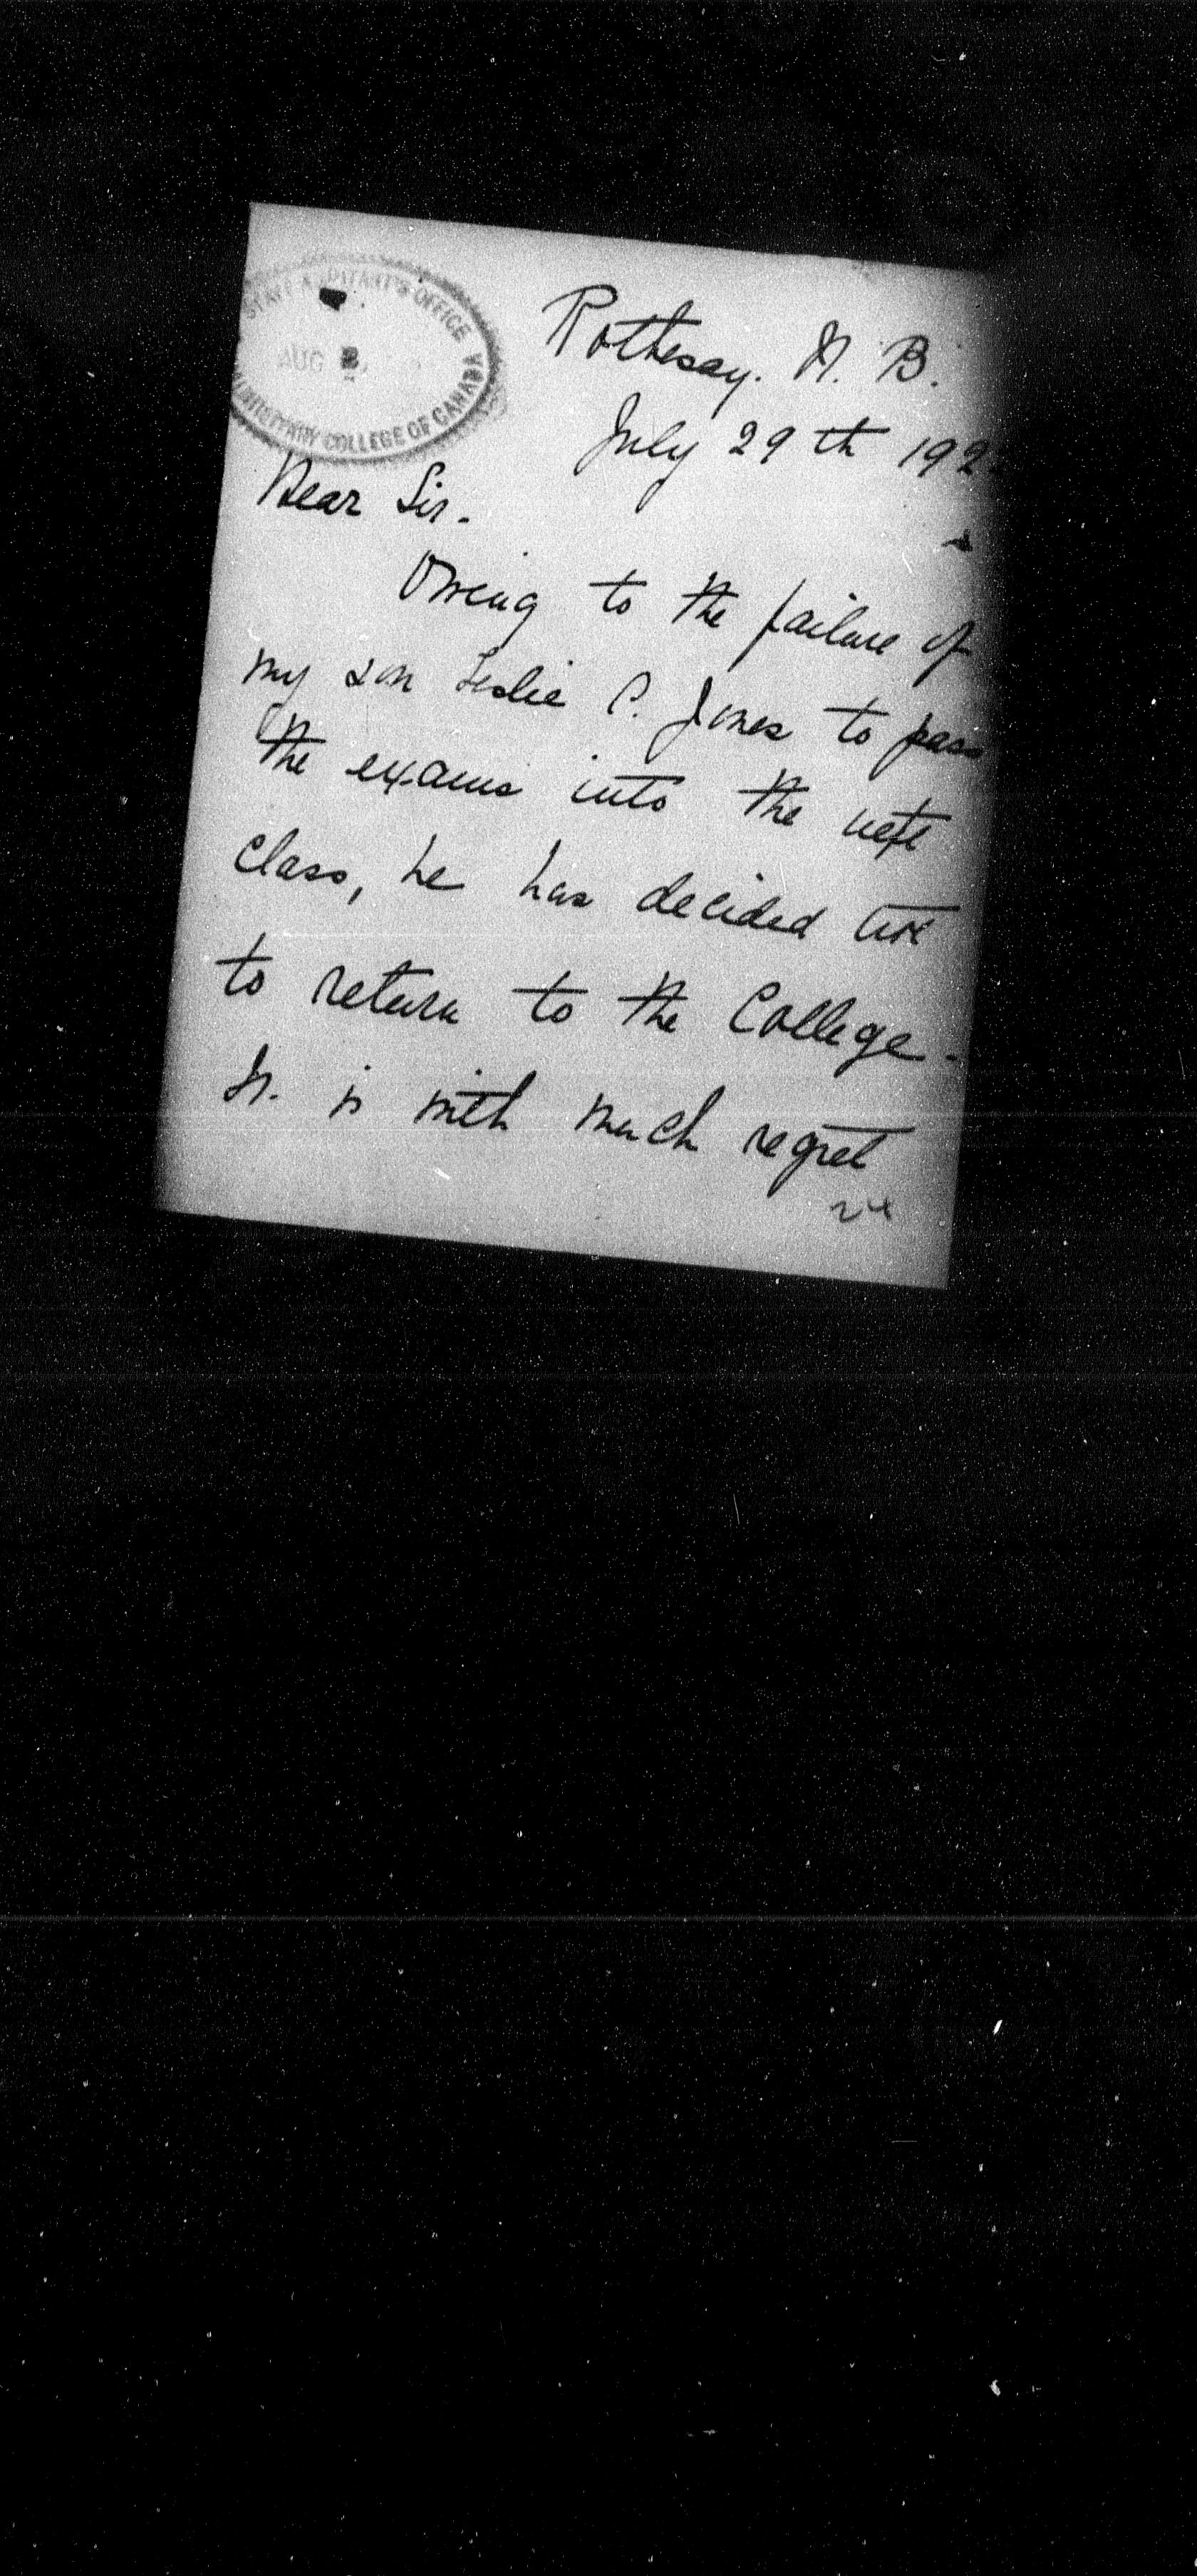 STAFF ADJUTANT'S OFFICE
AUG 2
MILITARY COLLEGE OF CANADA
Rothesay. N. B.
July 29th 192
Dear Sir.
Owing to the failure of
my son Leslie C. Jones to pass
the exams into the next
class, he has decided not
to return to the College.
It is with much regret
24